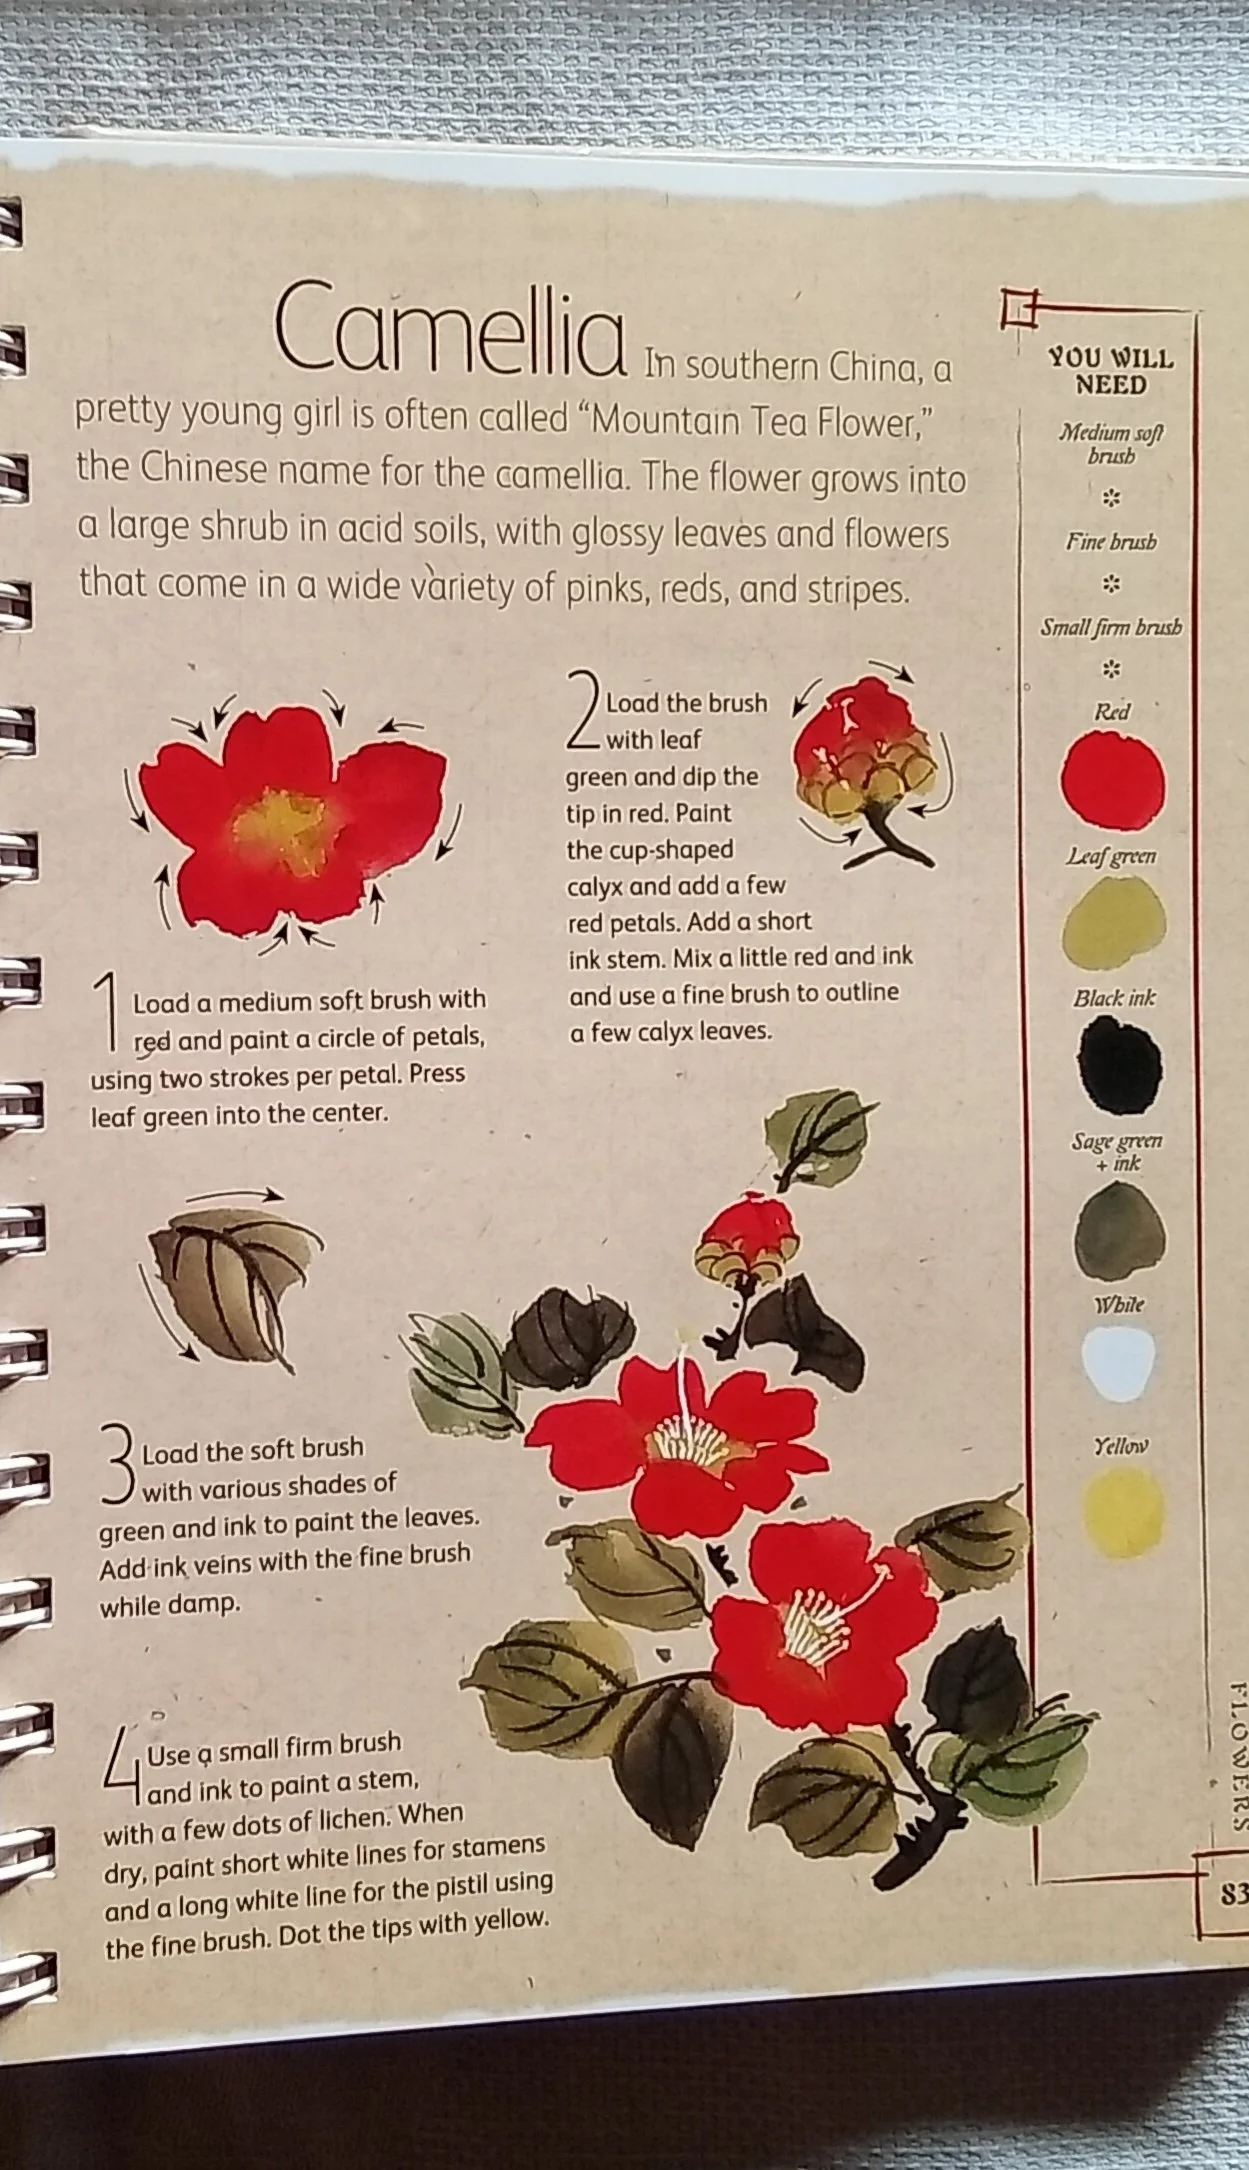 Camellia In southern China, a
pretty young girl is often called “Mountain Tea Flower,”
the Chinese name for the camellia. The flower grows into
a large shrub in acid soils, with glossy leaves and flowers
that come in a wide variety of pinks, reds, and stripes.
1 Load a medium soft brush with
red and paint a circle of petals,
using two strokes per petal. Press
leaf green into the center.
2 Load the brush
with leaf
green and dip the
tip in red. Paint
the cup-shaped
calyx and add a few
red petals. Add a short
ink stem. Mix a little red and ink
and use a fine brush to outline
a few calyx leaves.
3 Load the soft brush
with various shades of
green and ink to paint the leaves.
Add ink veins with the fine brush
while damp.
4 Use a small firm brush
and ink to paint a stem,
with a few dots of lichen. When
dry, paint short white lines for stamens
and a long white line for the pistil using
the fine brush. Dot the tips with yellow.
YOU WILL
NEED
Medium soft
brush
Fine brush
Small firm brush
Red
Leaf green
Black ink
Sage green
+ ink
White
Yellow
FLOWERS
83